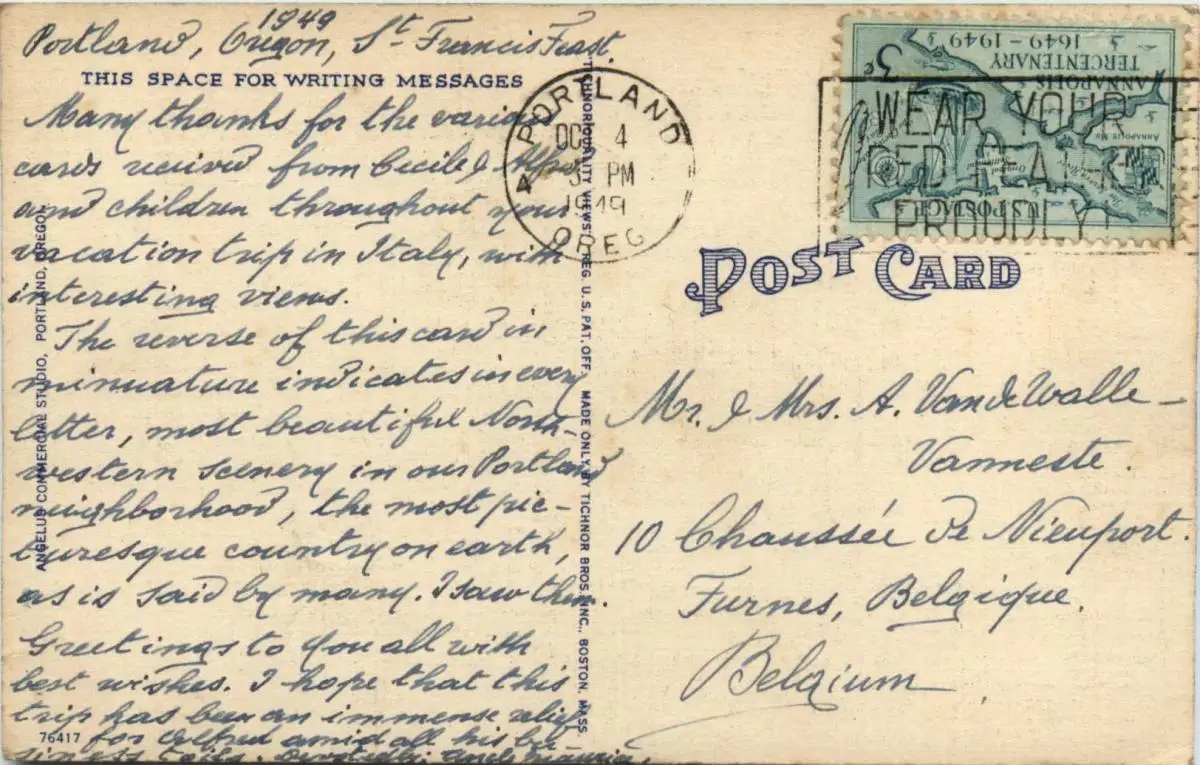 1949
Portland, Oregon, St Francis Feast.
THIS SPACE FOR WRITING MESSAGES
Many thanks for the various
cards received from Cecile & Alfred
and children throughout your
vacation trip in Italy, with
interesting views.
The reverse of this card in
minuature indicates in every
letter, most beautiful North-
western scenery in our Portland
neighborhood, the most pic-
turesque country on earth,
as is said by many. I saw them.
Greetings to you all with
best wishes. I hope that this
trip has been an immense relief
for Alfred amid all his bu-
siness toils. Devotedly, Uncle Maurice.
76417
ANGELUS COMMERCIAL STUDIO, PORTLAND, OREGON
"TICHNOR QUALITY VIEWS," REG. U. S. PAT. OFF. MADE ONLY BY TICHNOR BROS., INC., BOSTON, MASS.
PORTLAND
OCT 4
3 PM
1949
OREG
4
WEAR YOUR
RED FEATHER
PROUDLY!
3c
ANNAPOLIS
TERCENTENARY
1649-1949
U.S. POSTAGE
POST CARD
Mr. & Mrs. A. VandeWalle -
Vanneste.
10 Chaussée de Nieuport.
Furnes, Belgique.
Belgium